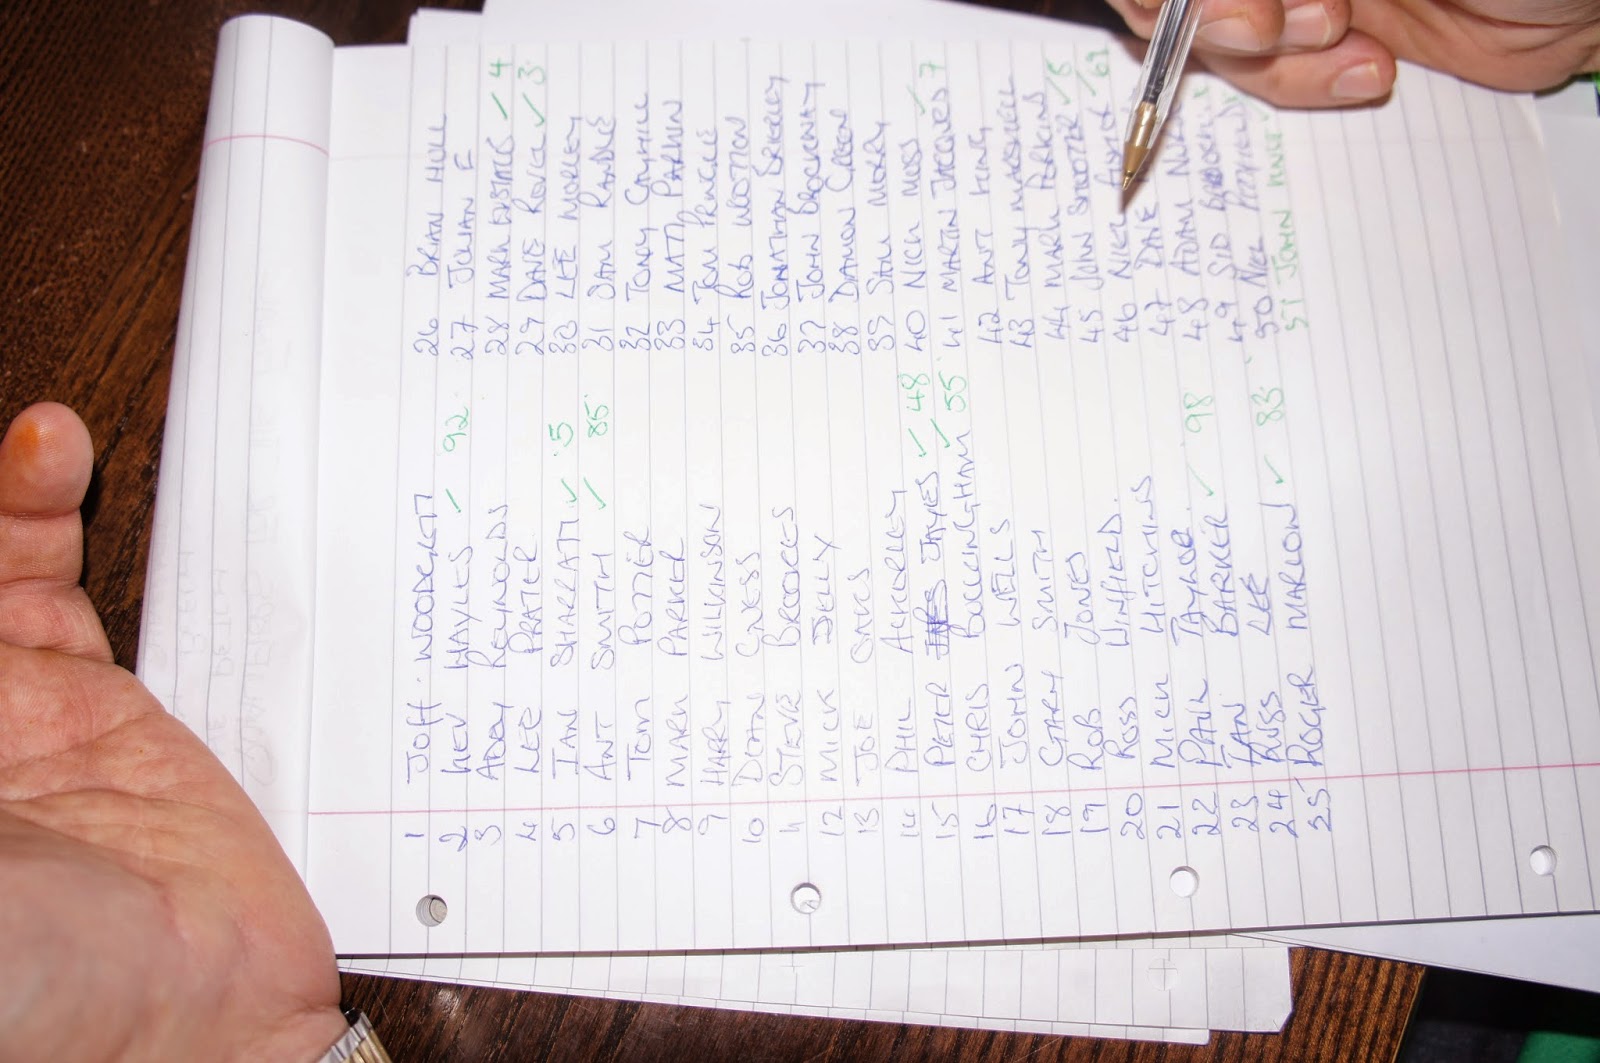 1 JOFF WOODCATT
2 KEV HAYLES ✓ 92
3 ADDY REYNOLDS
4 LEE PRATER
5 IAN SHARRATT ✓ 5
6 ANT SMITH ✓ 85
7 TOM POTTER
8 MARK PARKER
9 HARRY WILKINSON
10 DEAN
11 STEVE BROOKES
12 MICK
13 JOE
14 PHIL ACHERLEY
15 PETER JAYES ✓ 48
16 CHRIS BUCKINGHAM ✓ 55
17 JOHN WELLS
18 GARY SMITH
19 ROB JONES
20 ROSS WINFIELD.
21 MICK HITCHINS
22 PAUL TAYLOR.
23 IAN BARKER ✓ 98
24 RUSS LEE
25 ROGER MARLON ✓ 83
26 BRIAN HULL
27 JULIAN E
28 MARK EUSTACE ✓ 4
29 DAVE ROYCE ✓ 3
30 LEE MORLEY
31 SAM RANDLE
32 TONY CAYHILL
33 MATT PARKIN
34 TOM PRINGLE
35 ROB WOOTTON
36 JONATHAN BRIERLEY
37 JOHN BROCKWAY
38 DAMON GREEN
39 SAM MERRY
40 NICK MOSS ✓
41 MARTIN JACQUES 7
42 ANT KING
43 TONY MARSHALL
44 MARK PERKINS
45 JOHN SHOOTER ✓ 8
46 NICK ✓ 69
47 DAVE
48 ADAM
49 SID
50 NICK
51 JOHN